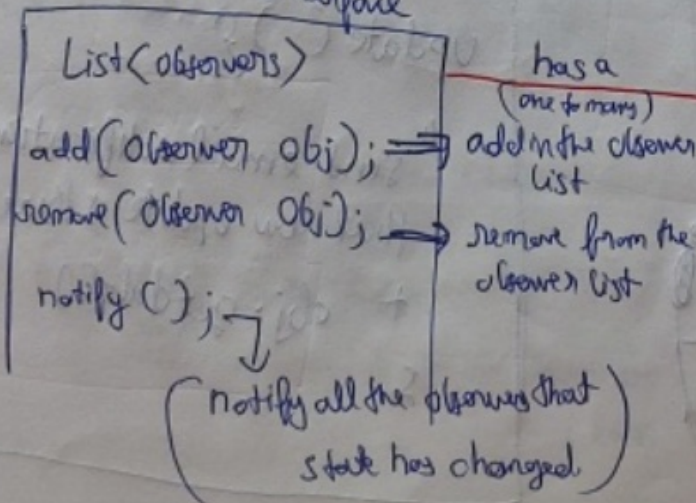 List<observers>
has a
(one to many)
add(Observer Obj); ⇒ add in the observer
list
remove(Observer Obj); ⇒ remove from the
observer list
notify();
(notify all the observers that
state has changed)